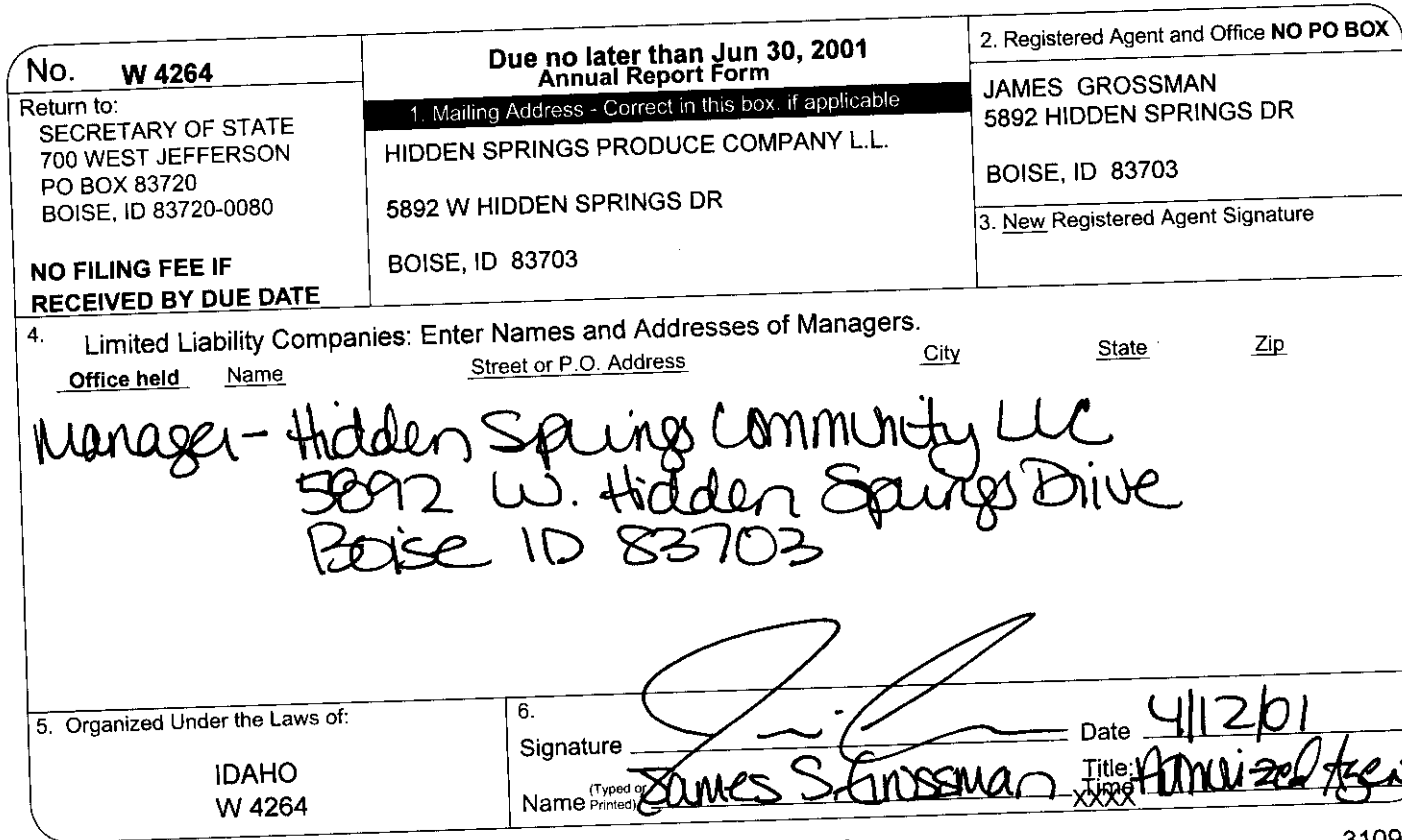 No. W 4264
Return to:
SECRETARY OF STATE
700 WEST JEFFERSON
PO BOX 83720
BOISE, ID 83720-0080
NO FILING FEE IF
RECEIVED BY DUE DATE
Due no later than Jun 30, 2001
Annual Report Form
1. Mailing Address - Correct in this box. if applicable
HIDDEN SPRINGS PRODUCE COMPANY L.L.
5892 W HIDDEN SPRINGS DR
BOISE, ID 83703
2. Registered Agent and Office NO PO BOX
JAMES GROSSMAN
5892 HIDDEN SPRINGS DR
BOISE, ID 83703
3. New Registered Agent Signature
4. Limited Liability Companies: Enter Names and Addresses of Managers.
Office held Name Street or P.O. Address City State Zip
Manager- Hidden Springs Community LLC
5892 W. Hidden Springs Drive
Boise ID 83703
5. Organized Under the Laws of:
IDAHO
W 4264
6.
Signature Date 4/12/01
Name (Typed or Printed) James S. Grossman Title: Authorized Agen
3109